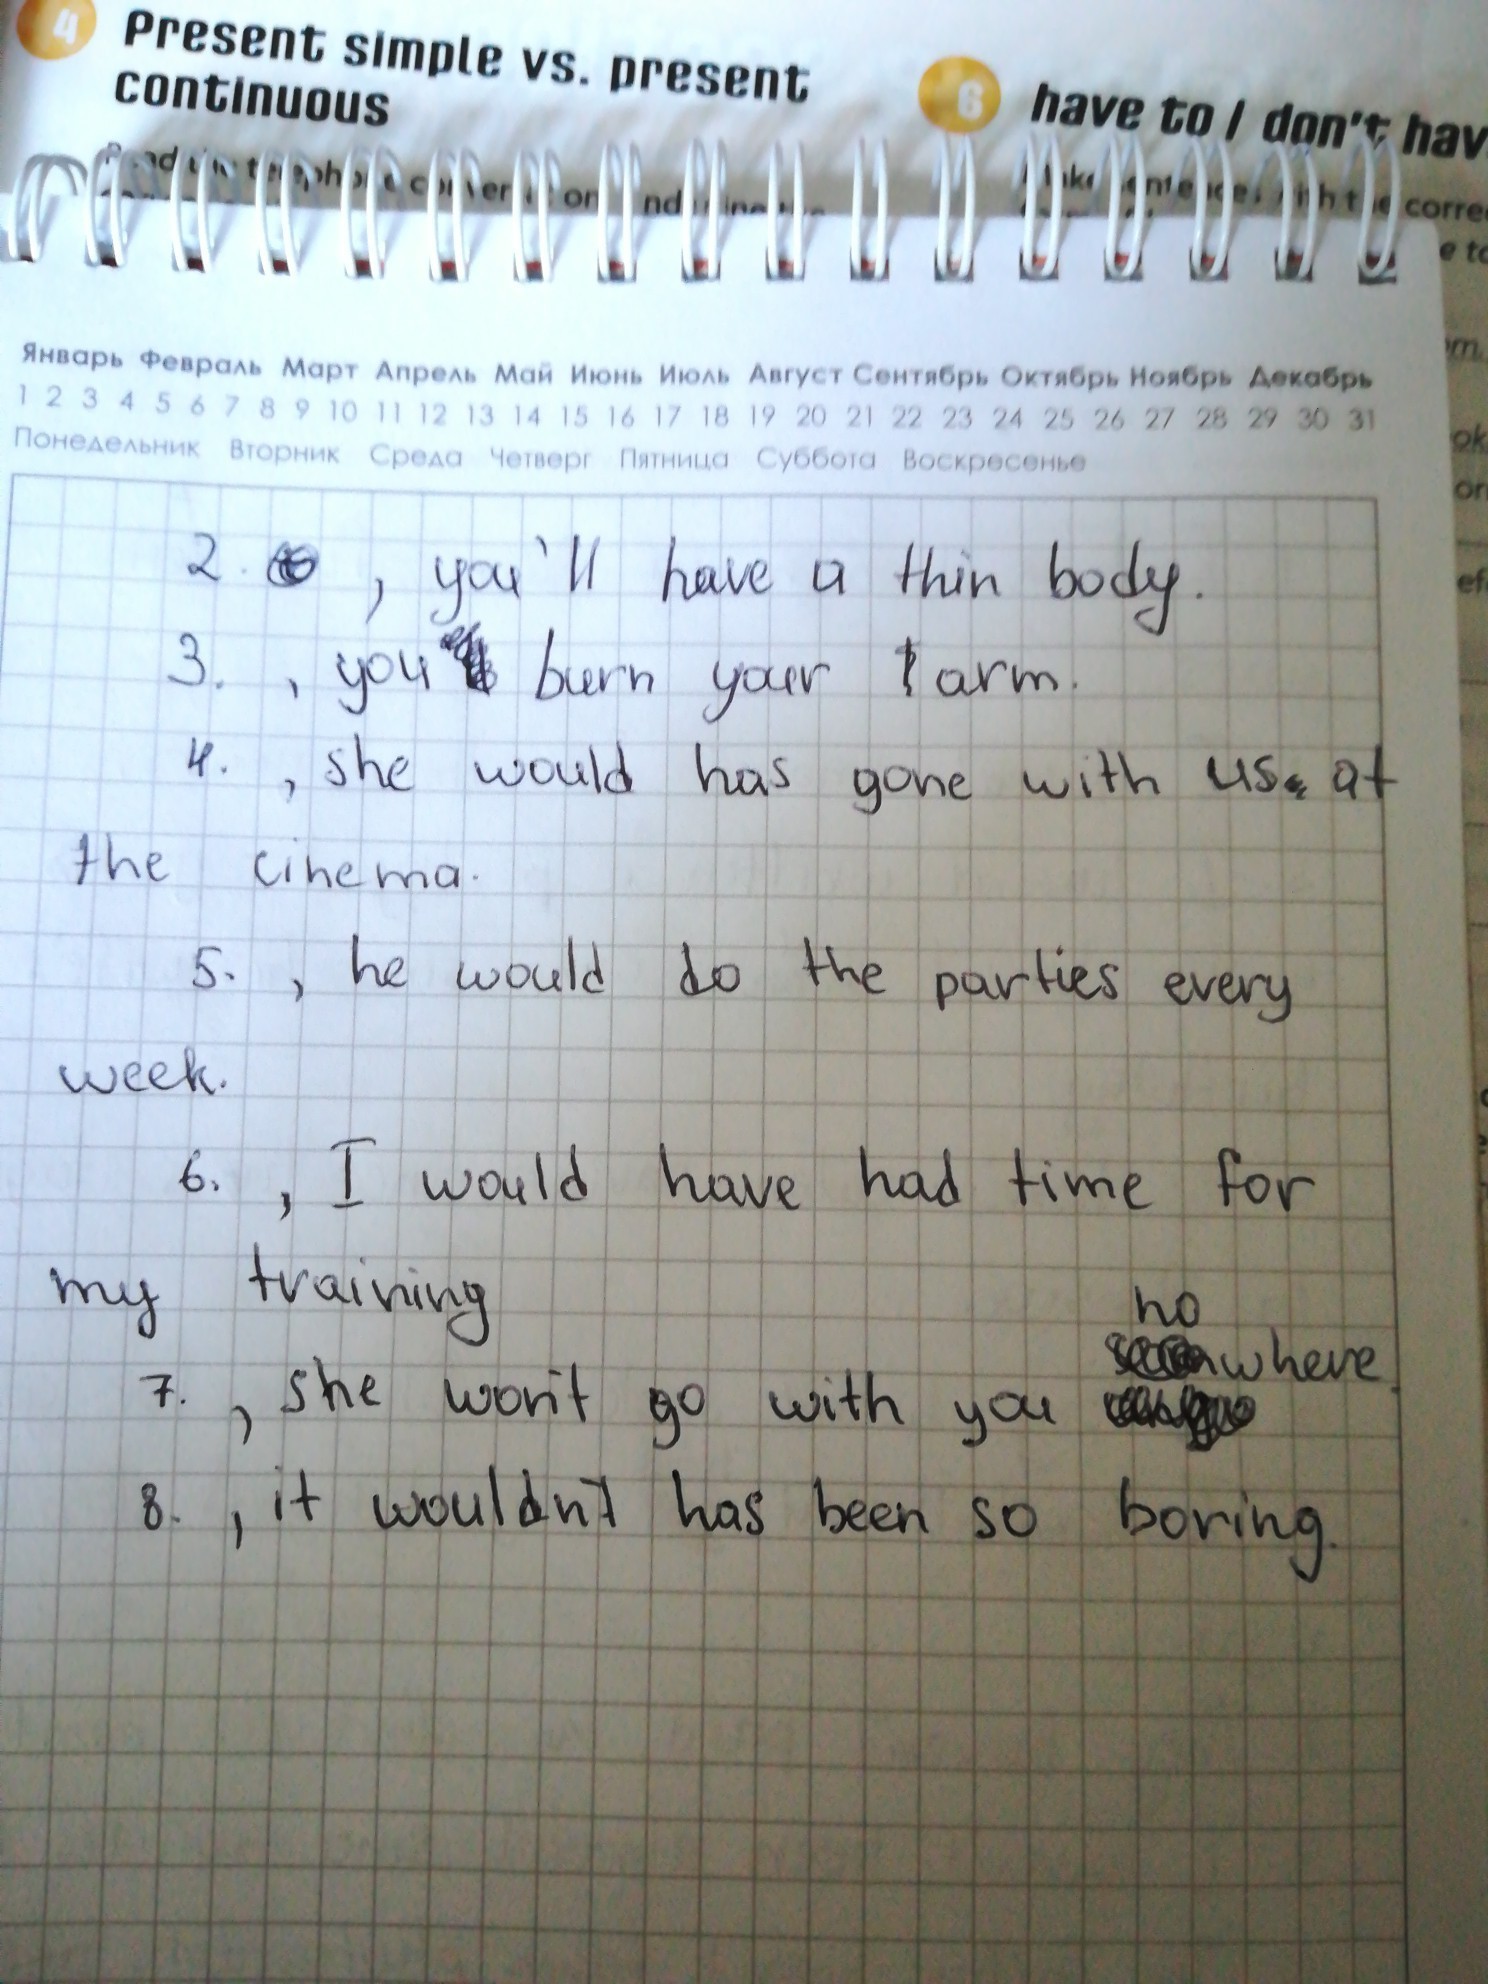 4 Present simple vs. present
continuous
6 have to / don't hav
corre
e to
Январь Февраль Март Апрель Май Июнь Июль Август Сентябрь Октябрь Ноябрь Декабрь
1 2 3 4 5 6 7 8 9 10 11 12 13 14 15 16 17 18 19 20 21 22 23 24 25 26 27 28 29 30 31
Понедельник Вторник Среда Четверг Пятница Суббота Воскресенье
2. , you'll have a thin body.
3. , you burn your arm.
4. , she would has gone with us at
the cinema.
5. , he would do the parties every
week.
6. , I would have had time for
my training
no
where
7. , she won't go with you
8. , it wouldn't has been so boring.